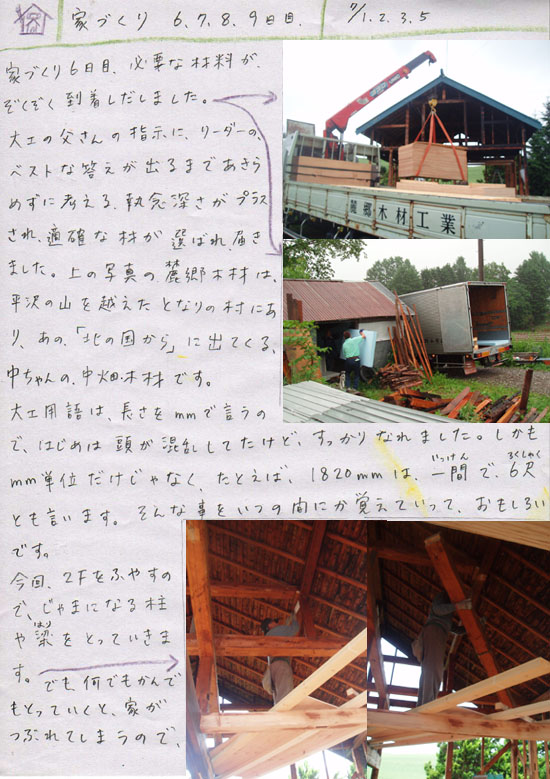 家づくり 6,7,8,9日目. 7/1.2.3.5
家づくり6日目、必要な材料が、
ぞくぞく到着しだしました。
大工の父さんの指示に、リーダーの、
ベストな答えが出るまであきら
めずに考える、執念深さがプラス
され、適確な材が選ばれ、届き
ました。上の写真の麓郷木材は、
平沢の山を越えたとなりの村にあ
り、あの、「北の国から」に出てくる、
中ちゃんの、中畑木材です。
大工用語は、長さをmmで言うの
で、はじめは頭が混乱してたけど、すっかりなれました。しかも
mm単位だけじゃなく、たとえば、1820mmは、一間で、6尺
いっけん ろくしゃく
とも言います。そんな事をいつの間にか覚えていって、おもしろい
です。
今回、2Fをふやすの
で、じゃまになる柱
や梁をとっていきま
はり
す。
でも、何でもかんで
もとっていくと、家が
つぶれてしまうので、
麓郷木材工業